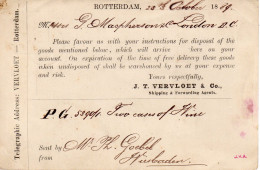 Telegraphic Address: VERVLOET — Rotterdam.
ROTTERDAM, 20th October 1879.
Messrs G. Macpherson & Co London E.C.
Please favour us with your instructions for disposal of the
goods mentioned below, which will arrive here on your
account. On expiration of the time of free delivery these goods
when undisposed of shall be warehoused by us at your expense
and risk.
Yours respectfully,
J. T. VERVLOET & Co.,
Shipping & Forwarding Agents.
P G. Two cases of Wine
Sent by Mr Ph. Goebel
from Wiesbaden